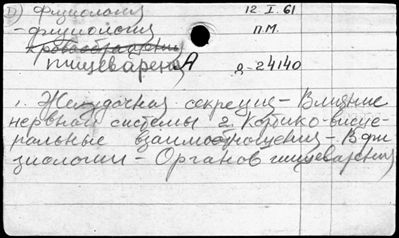 D) Физиология 12 I. 61
- физиология П.М.
кровообращения
пищеварения А Д-24140
1. Желудочная секреция - Влияние
нервной системы 2. Кортико-висце-
ральные взаимоотношения - В фи-
зиологии - Органов пищеварения